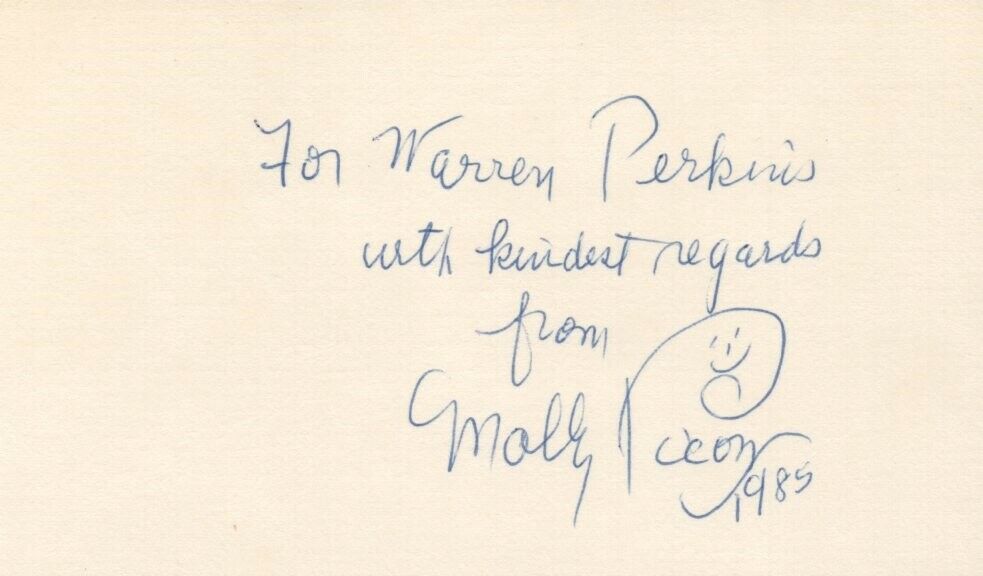 For Warren Perkins
with kindest regards
from
Molly Picon
1985